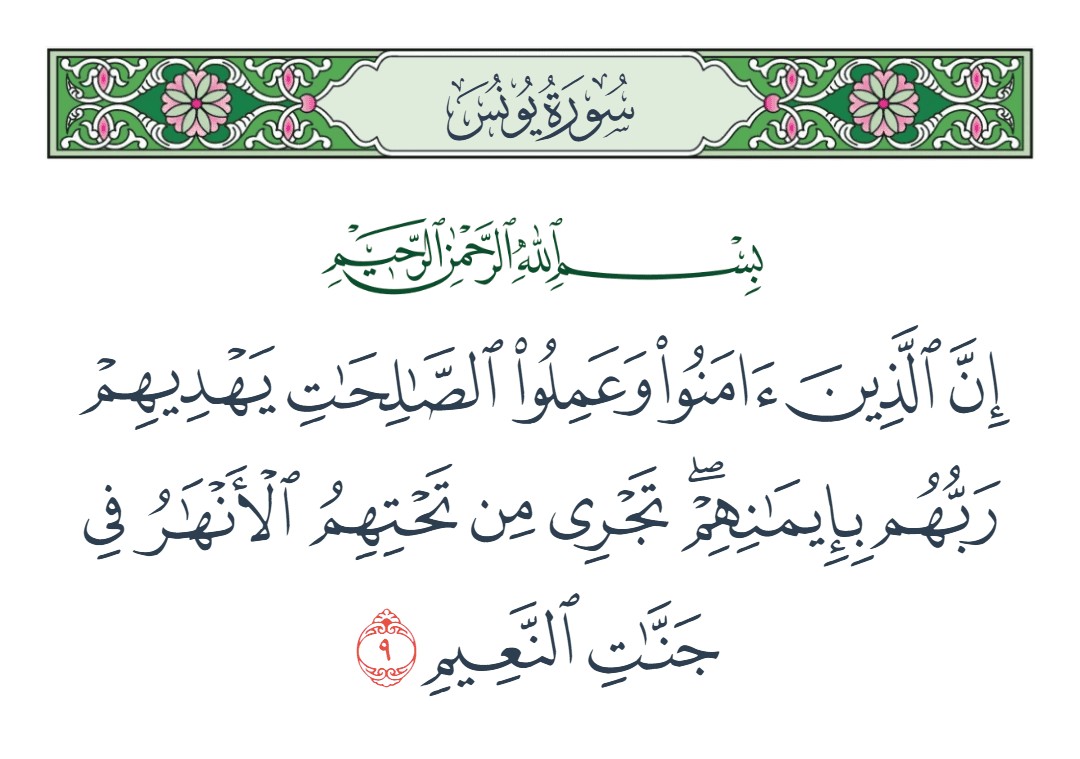 سُورَةُ يُونُسَ
بِسْمِ ٱللَّهِ ٱلرَّحْمَٰنِ ٱلرَّحِيمِ
إِنَّ ٱلَّذِينَ ءَامَنُوا۟ وَعَمِلُوا۟ ٱلصَّٰلِحَٰتِ يَهْدِيهِمْ
رَبُّهُم بِإِيمَٰنِهِمْ ۖ تَجْرِى مِن تَحْتِهِمُ ٱلْأَنْهَٰرُ فِى
جَنَّٰتِ ٱلنَّعِيمِ ٩